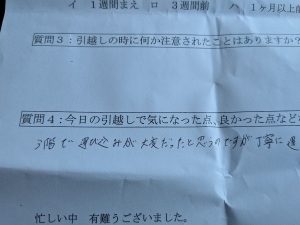 イ 1週間まえ ロ 3週間前 ハ 1ヶ月以上前
質問3：引越しの時に何か注意されたことはありますか?
質問4：今日の引越しで気になった点、良かった点など
3階で運び込みが大変だったと思うのですが丁寧に運
忙しい中 有難うございました。